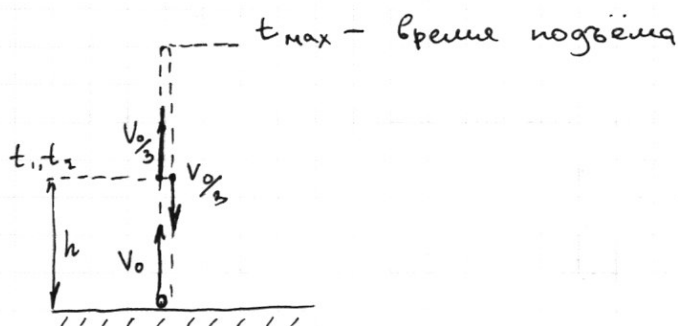 t max – время подъёма
V₀/3
t₁, t₂
V₀/3
h
V₀